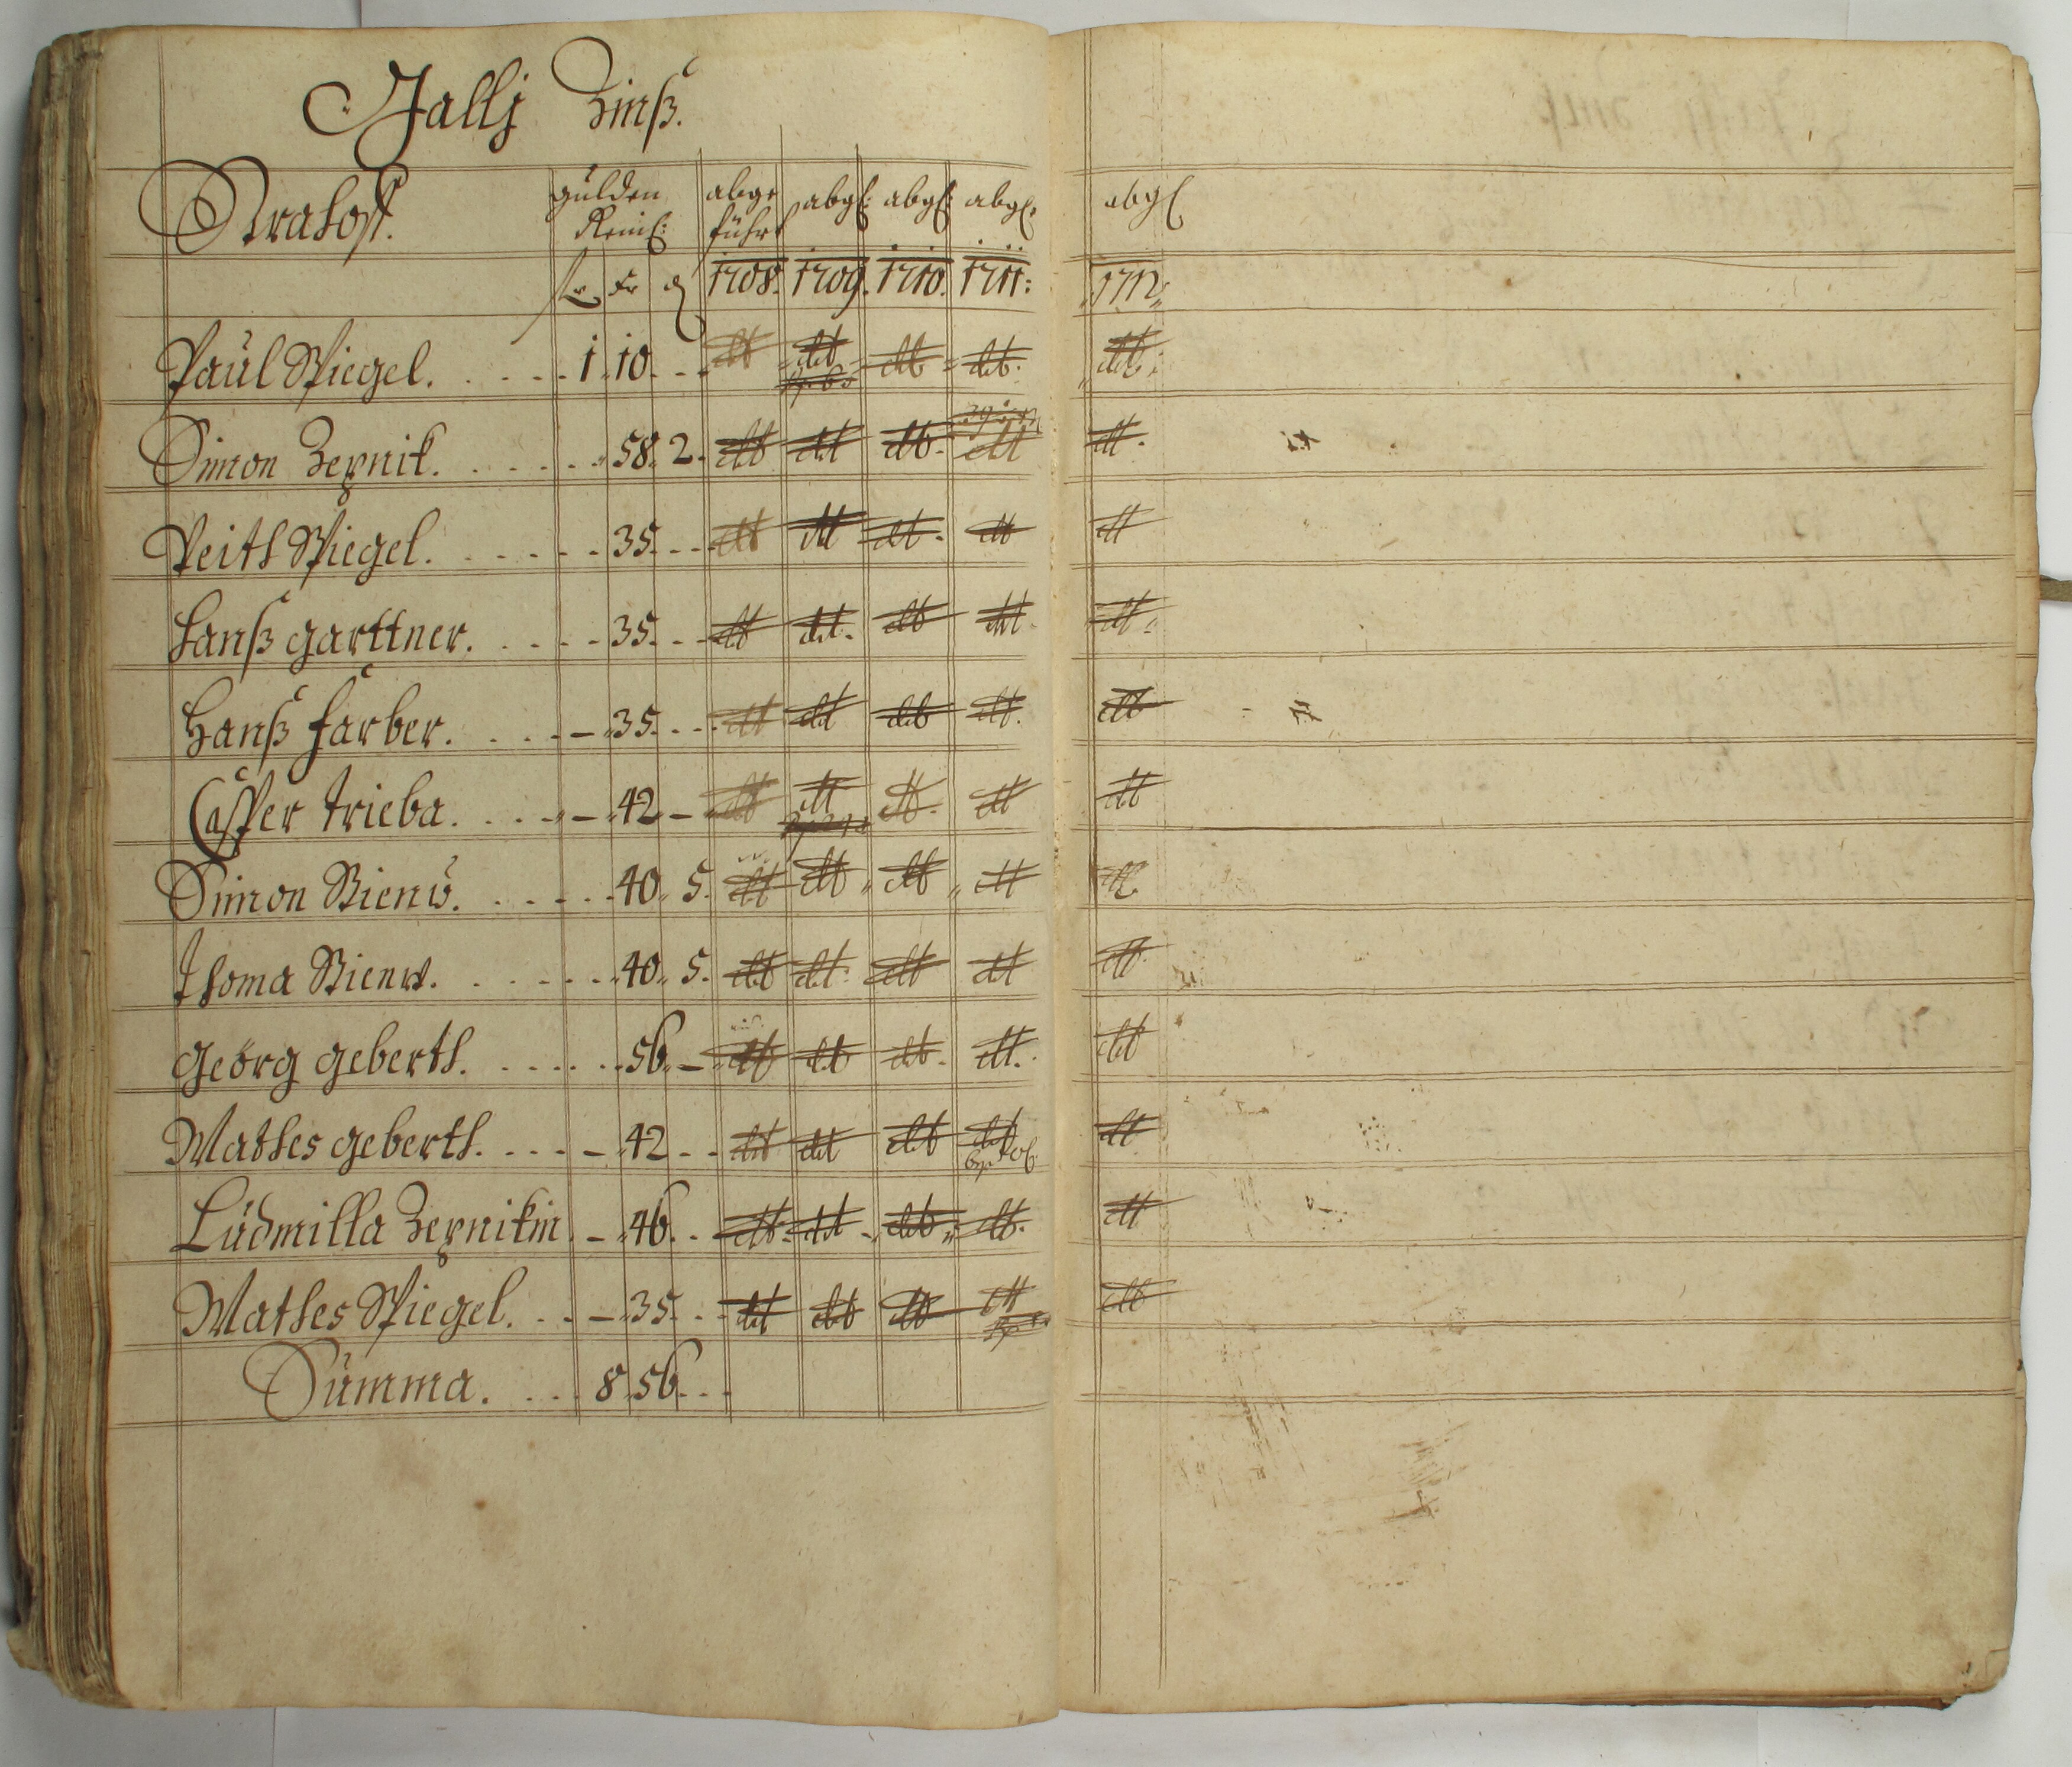 Gallj Zinß.
Kratost. gulden Reinl: abge führt abgl: abgl: abgl: abgl
fl Kr ₰ 1708. 1709. 1710. 1711: 1712:
Paul Spiegel. 1 10 dt dt dt dt dt
Simon Zernik. 58 2 dt dt dt dt dt
Veith Spiegel. 35 dt dt dt dt dt
Hanß garttner. 35 dt dt dt dt dt
Hanß farber. 35 dt dt dt dt dt
Casper trieba. 42 dt dt dt dt dt
Simon 40 5 dt dt dt dt dt
Thoma 40 5 dt dt dt dt dt
Georg geberth. 56 dt dt dt dt dt
Mathes geberth. 42 dt dt dt dt dt
Ludmilla Zernikin 46 dt dt dt dt dt
Mathes Spiegel. 35 dt dt dt dt dt
Summa. 8 56